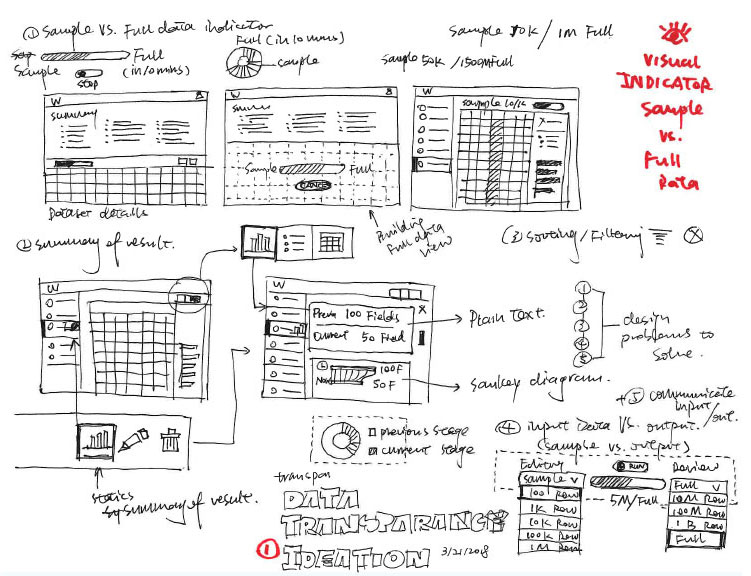 ① Sample vs. Full data indicator
Sample
Full
(in 10 mins)
Stop
Full (in 10 mins)
Sample
Sample 10K / 1M Full
Sample 50K / 1500M Full
VISUAL
INDICATOR
Sample
vs.
Full
Data
W
Summary
Dataset details
W
Sample
Full
CANCEL
Building
Full data
view
W
sample 10/1K
X
② Summary of result.
(3) Sorting/Filtering
W
W
Prev 100 Fields
Current 50 Field
X
Plain Text.
100F
Now
50F
Sankey diagram.
1
2
3
4
5
design
problems to
solve.
+⑤ communicate
input/out.
④ input Data vs. output.
(Sample vs. output)
previous stage
current stage
statics
summary of result.
Editing
Sample v
100 Row
1K Row
10K Row
100K Row
1M Row
RUN
5M/Full
Review
Full v
10M Row
100M Row
1B Row
Full
transpar
DATA
TRANSPARANCE
① IDEATION 3/21/2018